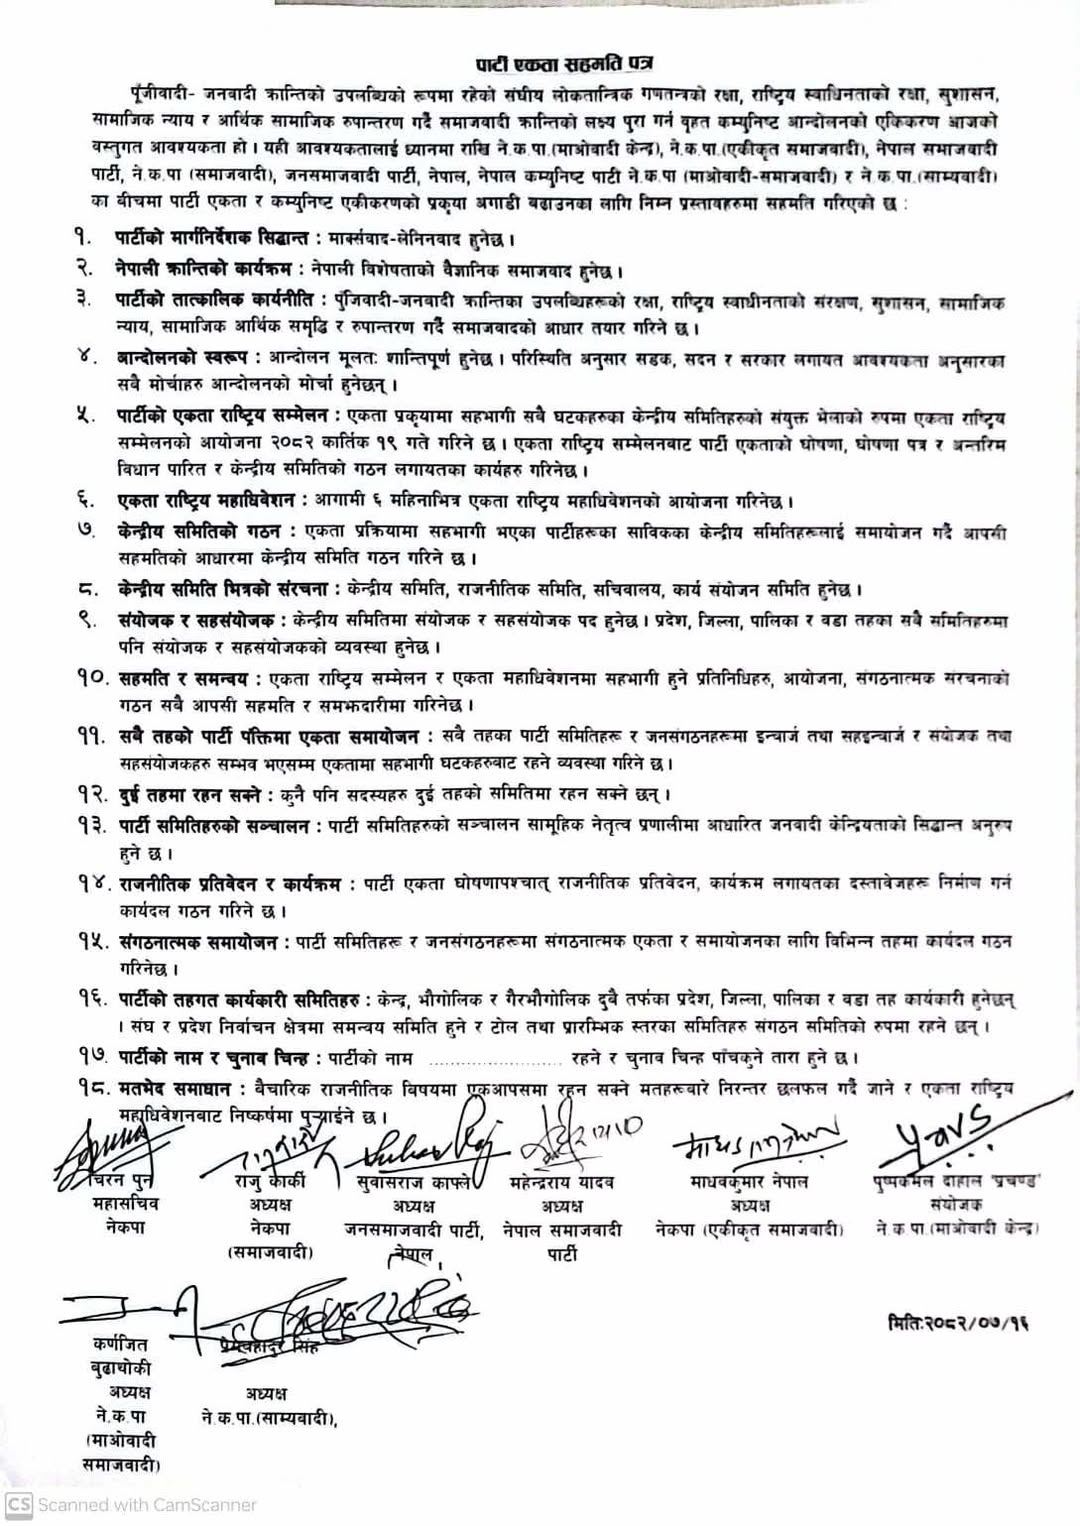 पार्टी एकता सहमति पत्र
पूँजीवादी- जनवादी क्रान्तिको उपलब्धिको रूपमा रहेको संघीय लोकतान्त्रिक गणतन्त्रको रक्षा, राष्ट्रिय स्वाधिनताको रक्षा, सुशासन,
सामाजिक न्याय र आर्थिक सामाजिक रुपान्तरण गर्दै समाजवादी क्रान्तिको लक्ष्य पुरा गर्न वृहत कम्युनिष्ट आन्दोलनको एकिकरण आजको
वस्तुगत आवश्यकता हो । यही आवश्यकतालाई ध्यानमा राखि ने.क.पा.(माओवादी केन्द्र), ने.क.पा.(एकीकृत समाजवादी), नेपाल समाजवादी
पार्टी, ने.क.पा (समाजवादी), जनसमाजवादी पार्टी, नेपाल, नेपाल कम्युनिष्ट पार्टी ने.क.पा (माओवादी-समाजवादी) र ने.क.पा.(साम्यवादी)
का बीचमा पार्टी एकता र कम्युनिष्ट एकीकरणको प्रकृया अगाडी बढाउनका लागि निम्न प्रस्तावहरुमा सहमति गरिएको छ :
१. पार्टीको मार्गनिर्देशक सिद्धान्त : मार्क्सवाद-लेनिनवाद हुनेछ ।
२. नेपाली क्रान्तिको कार्यक्रम : नेपाली विशेषताको वैज्ञानिक समाजवाद हुनेछ ।
३. पार्टीको तात्कालिक कार्यनीति : पुँजिवादी-जनवादी क्रान्तिका उपलब्धिहरूको रक्षा, राष्ट्रिय स्वाधीनताको संरक्षण, सुशासन, सामाजिक
न्याय, सामाजिक आर्थिक समृद्धि र रुपान्तरण गर्दै समाजवादको आधार तयार गरिने छ ।
४. आन्दोलनको स्वरूप : आन्दोलन मूलतः शान्तिपूर्ण हुनेछ । परिस्थिति अनुसार सडक, सदन र सरकार लगायत आवश्यकता अनुसारका
सबै मोर्चाहरु आन्दोलनको मोर्चा हुनेछन् ।
५. पार्टीको एकता राष्ट्रिय सम्मेलन : एकता प्रकृयामा सहभागी सबै घटकहरुका केन्द्रीय समितिहरुको संयुक्त भेलाको रुपमा एकता राष्ट्रिय
सम्मेलनको आयोजना २०८२ कार्तिक १९ गते गरिने छ । एकता राष्ट्रिय सम्मेलनबाट पार्टी एकताको घोषणा, घोषणा पत्र र अन्तरिम
विधान पारित र केन्द्रीय समितिको गठन लगायतका कार्यहरु गरिनेछ ।
६. एकता राष्ट्रिय महाधिवेशन : आगामी ६ महिनाभित्र एकता राष्ट्रिय महाधिवेशनको आयोजना गरिनेछ ।
७. केन्द्रीय समितिको गठन : एकता प्रक्रियामा सहभागी भएका पार्टीहरूका साविकका केन्द्रीय समितिहरूलाई समायोजन गर्दै आपसी
सहमतिको आधारमा केन्द्रीय समिति गठन गरिने छ ।
८. केन्द्रीय समिति भित्रको संरचना : केन्द्रीय समिति, राजनीतिक समिति, सचिवालय, कार्य संयोजन समिति हुनेछ ।
९. संयोजक र सहसंयोजक : केन्द्रीय समितिमा संयोजक र सहसंयोजक पद हुनेछ । प्रदेश, जिल्ला, पालिका र वडा तहका सबै समितिहरुमा
पनि संयोजक र सहसंयोजकको व्यवस्था हुनेछ ।
१०. सहमति र समन्वय : एकता राष्ट्रिय सम्मेलन र एकता महाधिवेशनमा सहभागी हुने प्रतिनिधिहरु, आयोजना, संगठनात्मक संरचनाको
गठन सबै आपसी सहमति र समझदारीमा गरिनेछ ।
११. सबै तहको पार्टी पंक्तिमा एकता समायोजन : सबै तहका पार्टी समितिहरू र जनसंगठनहरूमा इन्चार्ज तथा सहइन्चार्ज र संयोजक तथा
सहसंयोजकहरु सम्भव भएसम्म एकतामा सहभागी घटकहरुबाट रहने व्यवस्था गरिने छ।
१२. दुई तहमा रहन सक्ने : कुनै पनि सदस्यहरु दुई तहको समितिमा रहन सक्ने छन् ।
१३. पार्टी समितिहरुको सञ्चालन : पार्टी समितिहरुको सञ्चालन सामूहिक नेतृत्व प्रणालीमा आधारित जनवादी केन्द्रियताको सिद्धान्त अनुरुप
हुने छ ।
१४. राजनीतिक प्रतिवेदन र कार्यक्रम : पार्टी एकता घोषणापश्चात् राजनीतिक प्रतिवेदन, कार्यक्रम लगायतका दस्तावेजहरू निर्माण गर्न
कार्यदल गठन गरिने छ ।
१५. संगठनात्मक समायोजन : पार्टी समितिहरू र जनसंगठनहरूमा संगठनात्मक एकता र समायोजनका लागि विभिन्न तहमा कार्यदल गठन
गरिनेछ ।
१६. पार्टीको तहगत कार्यकारी समितिहरु : केन्द्र, भौगोलिक र गैरभौगोलिक दुबै तर्फका प्रदेश, जिल्ला, पालिका र वडा तह कार्यकारी हुनेछन्
। संघ र प्रदेश निर्वाचन क्षेत्रमा समन्वय समिति हुने र टोल तथा प्रारम्भिक स्तरका समितिहरु संगठन समितिको रुपमा रहने छन् ।
१७. पार्टीको नाम र चुनाव चिन्ह : पार्टीको नाम ........................ रहने र चुनाव चिन्ह पाँचकुने तारा हुने छ ।
१८. मतभेद समाधान : बैचारिक राजनीतिक विषयमा एकआपसमा रहन सक्ने मतहरूबारे निरन्तर छलफल गर्दै जाने र एकता राष्ट्रिय
महाधिवेशनबाट निष्कर्षमा पुर्‍याईने छ ।
चिरन पुन राजु कार्की सुवासराज काफ्ले महेन्द्रराय यादव माधवकुमार नेपाल पुष्पकमल दाहाल 'प्रचण्ड'
महासचिव अध्यक्ष अध्यक्ष अध्यक्ष अध्यक्ष संयोजक
नेकपा नेकपा जनसमाजवादी पार्टी, नेपाल समाजवादी नेकपा (एकीकृत समाजवादी) ने.क.पा.(माओवादी केन्द्र)
(समाजवादी) नेपाल, पार्टी
मिति:२०८२/०७/१६
कर्णजित प्रेमबहादुर सिंह
बुढाथोकी
अध्यक्ष अध्यक्ष
ने.क.पा ने.क.पा.(साम्यवादी),
(माओवादी
समाजवादी)
CS Scanned with CamScanner